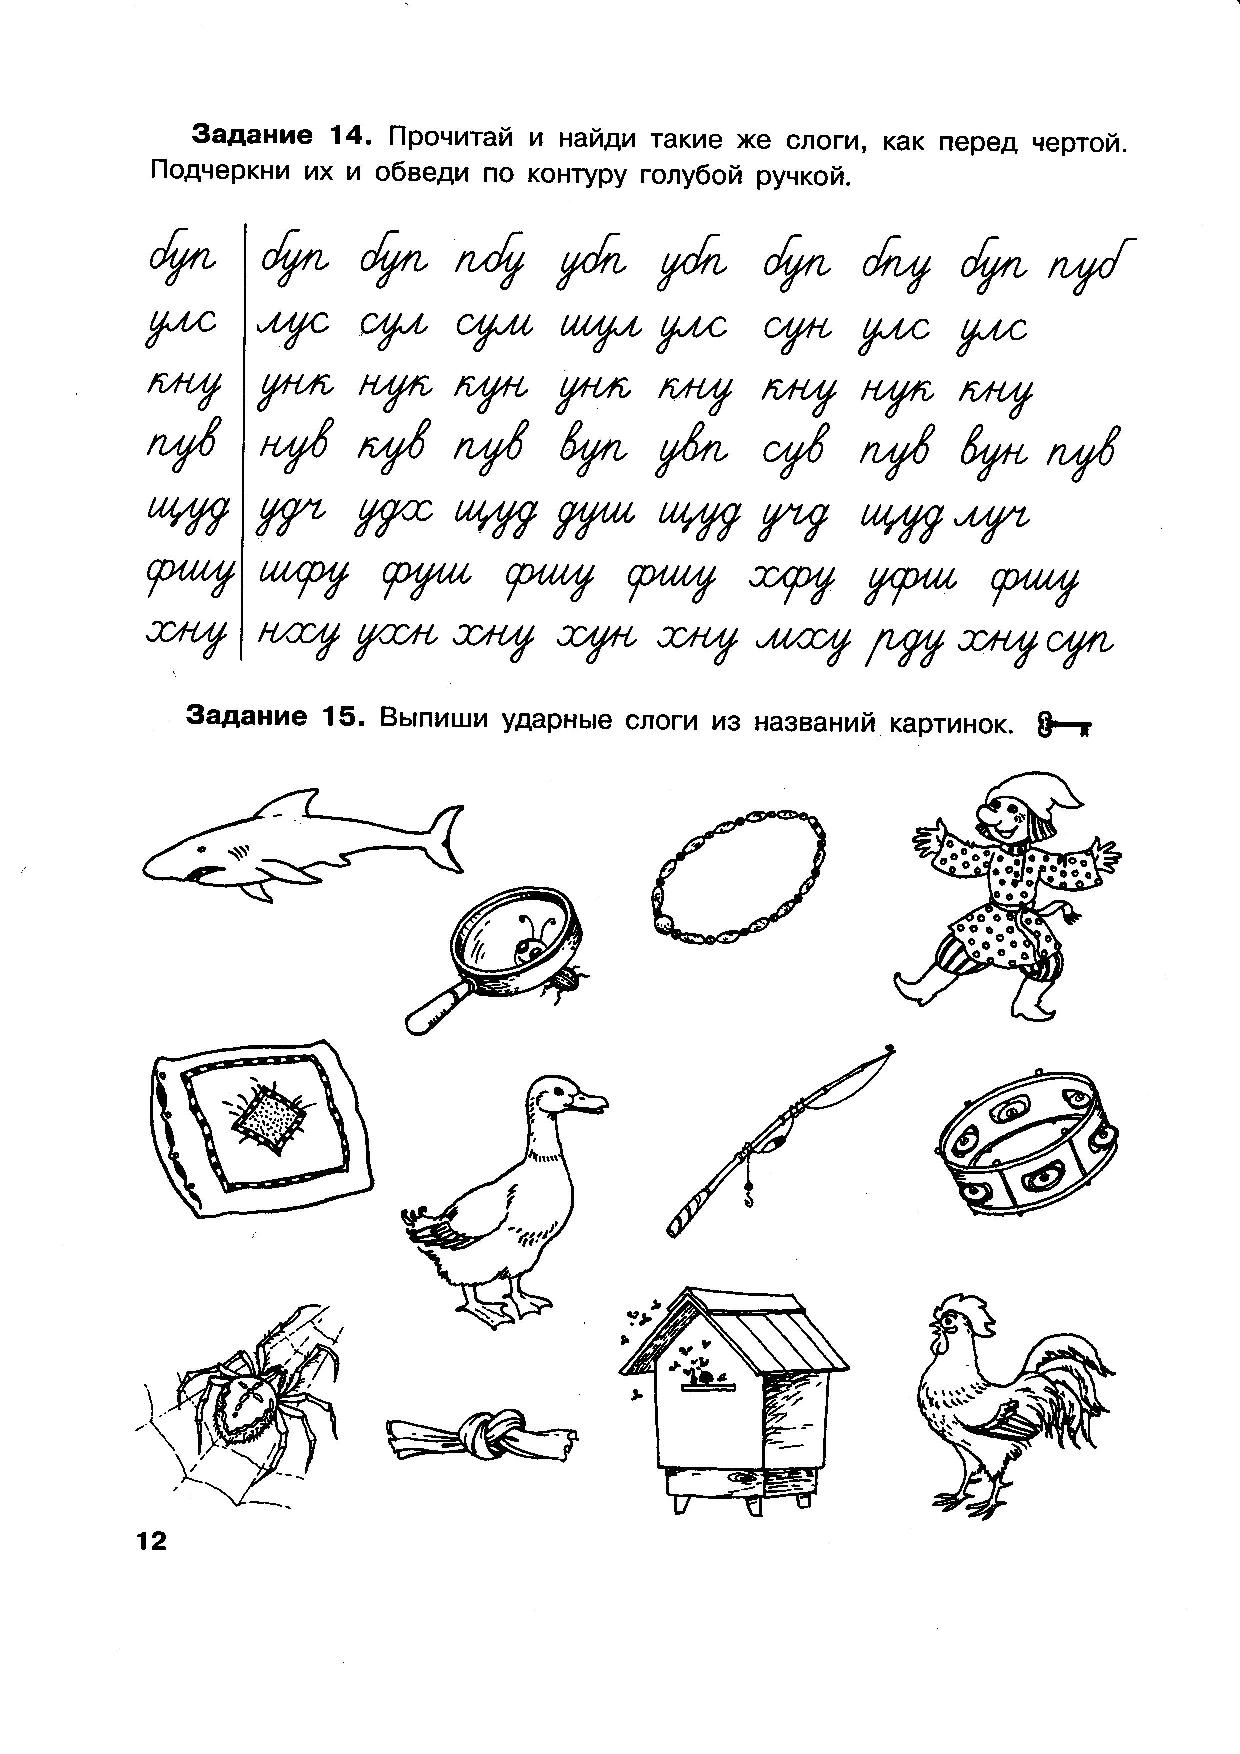 Задание 14. Прочитай и найди такие же слоги, как перед чертой.
Подчеркни их и обведи по контуру голубой ручкой.
буп буп буп пбу убп убп буп бпу буп пуб
улс лус сул сум шул улс сун улс улс
кну унк нук кун унк кну кну нук кну
пув нув кув пув вуп увп сув пув вун пув
щуд удч удх щуд душ щуд учд щуд луч
фшу шфу фуш фшу фшу хфу уфш фшу
хну нху ухн хну хун хну мху рду хну суп
Задание 15. Выпиши ударные слоги из названий картинок.
12